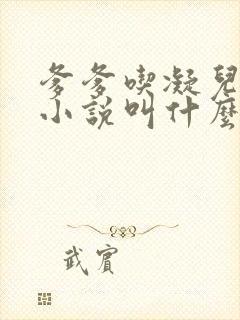 爹爹喫凝兒
小説叫什麼
武賓